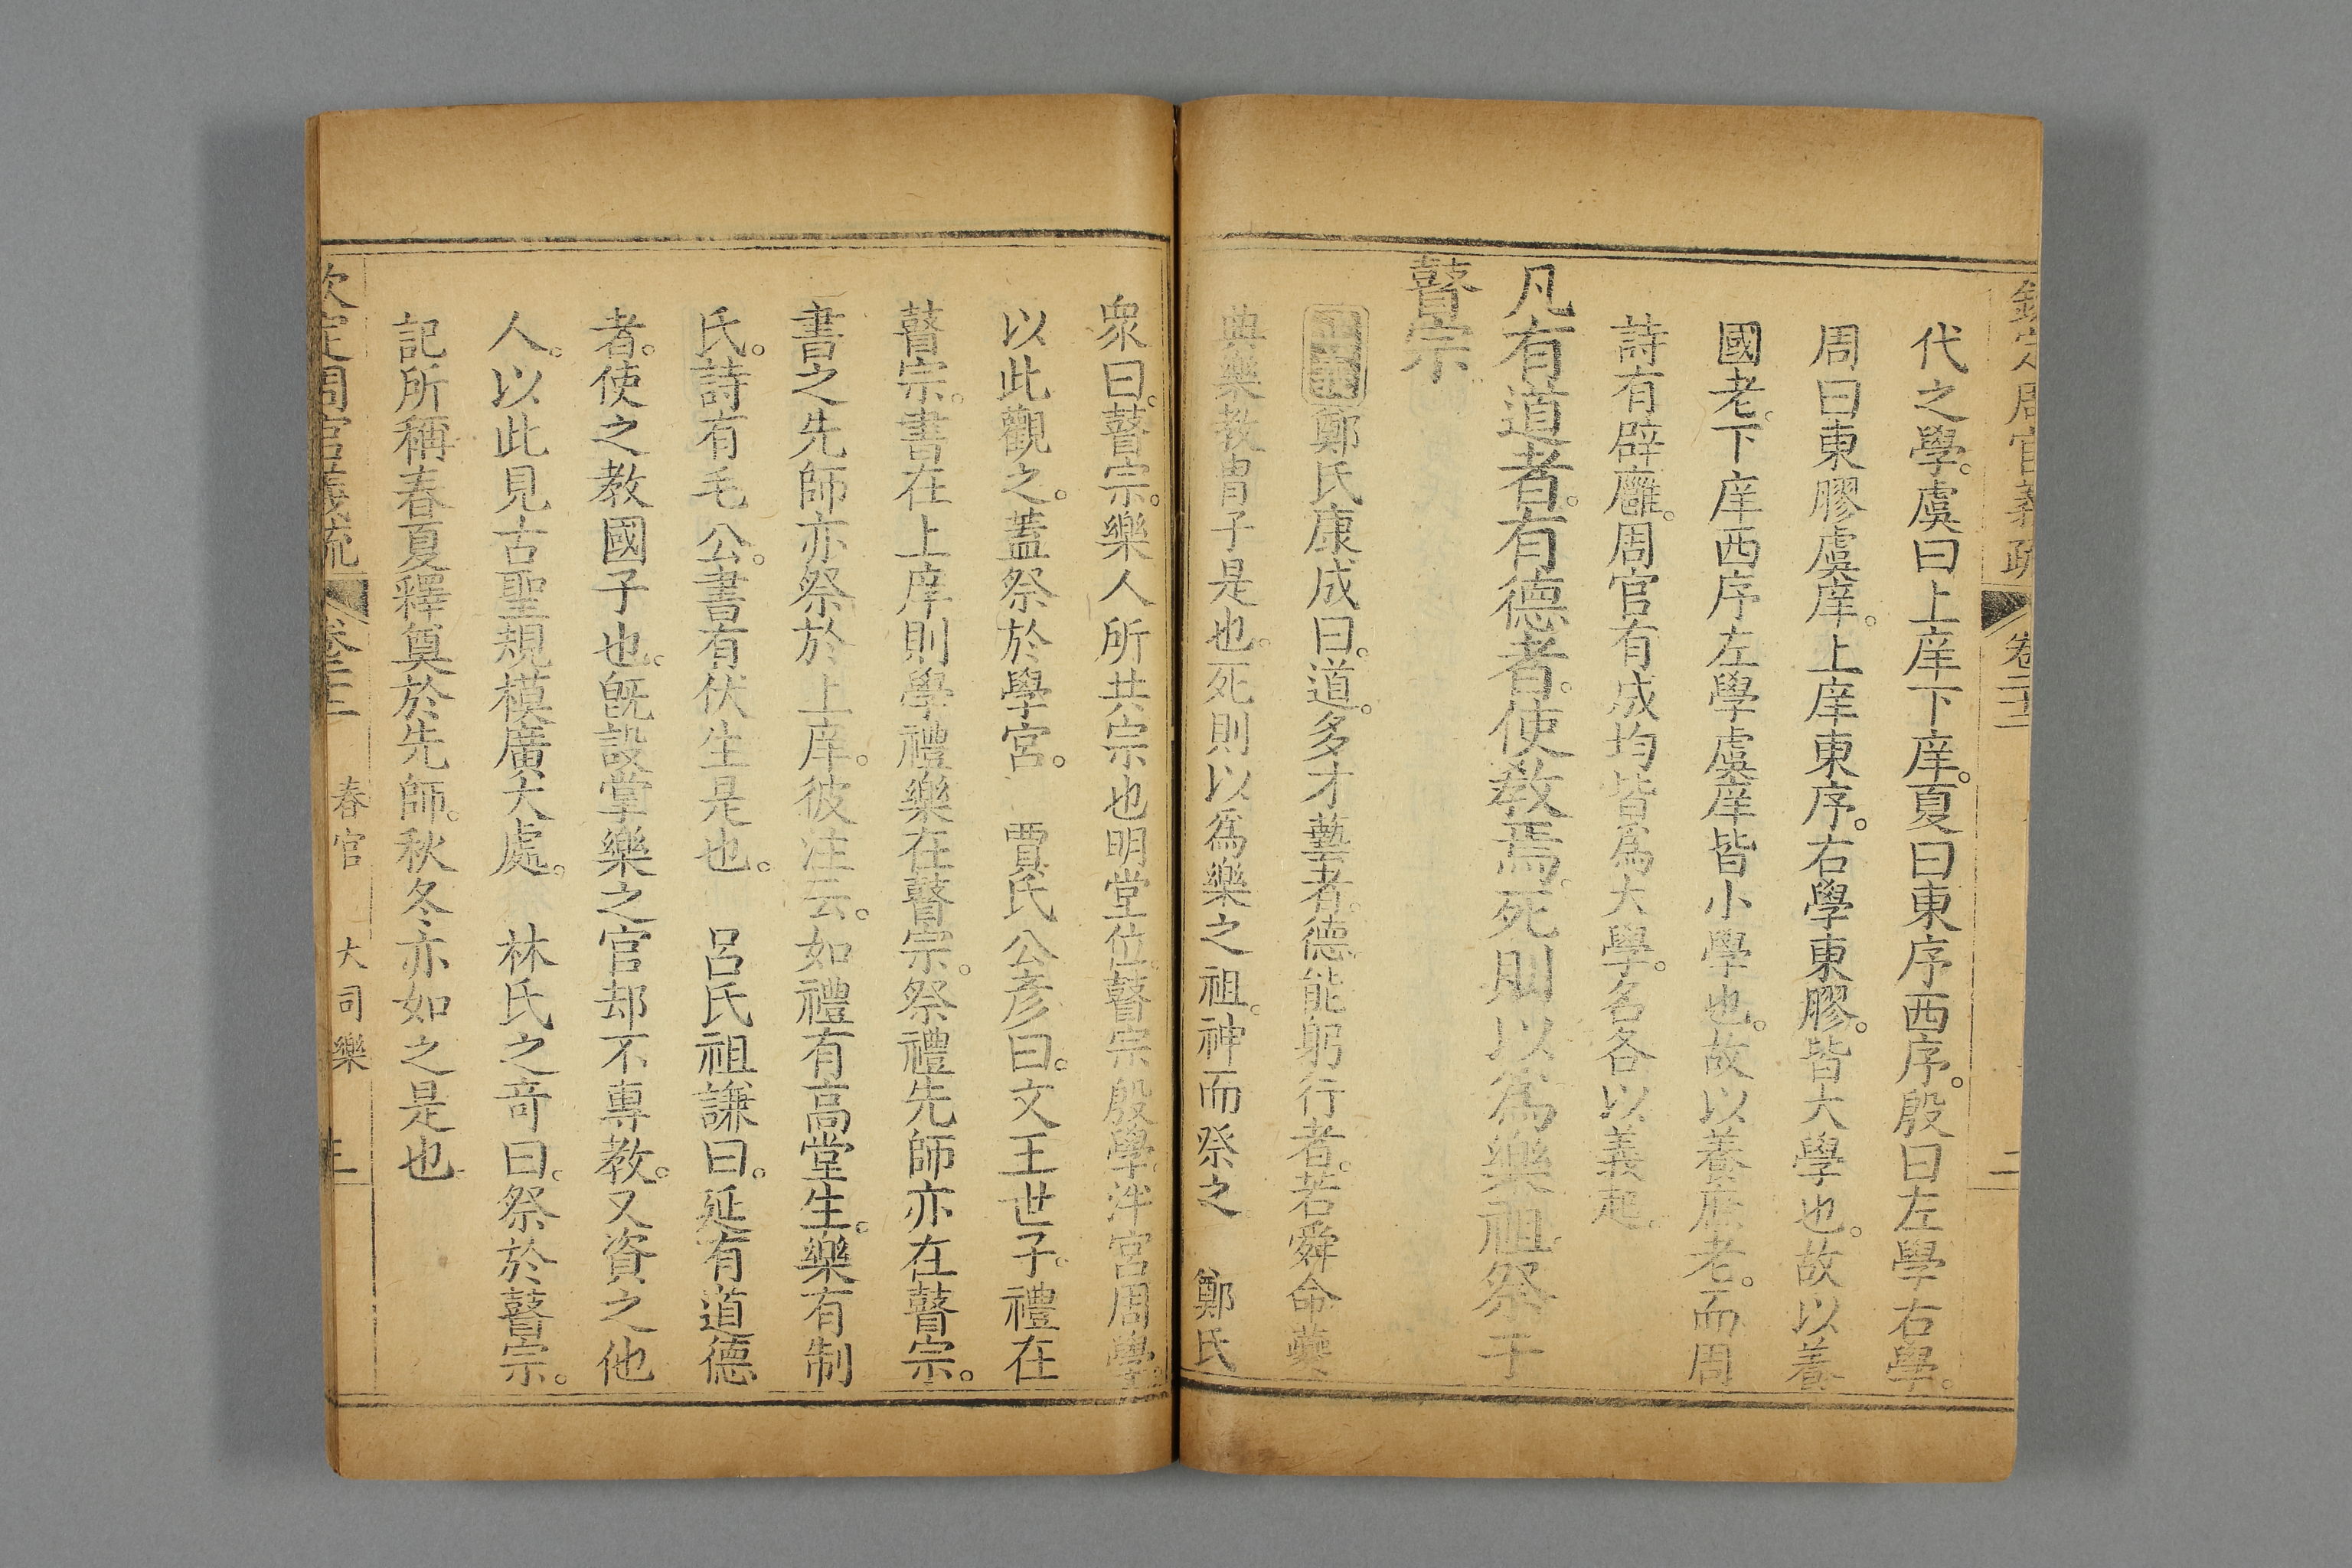 欽定周官義疏 卷二十二 二
代之學。虞曰上庠下庠。夏曰東序西序。殷曰左學右學。
周曰東膠虞庠。上庠東序。右學東膠。皆大學也。故以養
國老。下庠西序左學虞庠皆小學也。故以養庶老。而周
詩有辟廱。周官有成均皆為大學。名各以義起。
凡有道者。有德者。使教焉。死則以為樂祖。祭于
瞽宗
鄭氏康成曰。道。多才藝者。德。能躬行者。若舜命夔
典樂教胄子是也。死則以為樂之祖。神而祭之 鄭氏
衆曰。瞽宗。樂人所共宗也明堂位。瞽宗殷學。泮宮周學。
以此觀之。蓋祭於學宮。 賈氏公彥曰。文王世子。禮在
瞽宗。書在上庠則學禮樂在瞽宗。祭禮先師亦在瞽宗。
書之先師亦祭於上庠。彼注云。如禮有高堂生。樂有制
氏。詩有毛公。書有伏生是也。 呂氏祖謙曰。延有道德
者。使之教國子也。旣設掌樂之官却不專教。又資之他
人。以此見古聖規模廣大處。 林氏之奇曰。祭於瞽宗。
記所稱春夏釋奠於先師。秋冬亦如之是也
欽定周官義疏 卷二十二 春官 大司樂 三